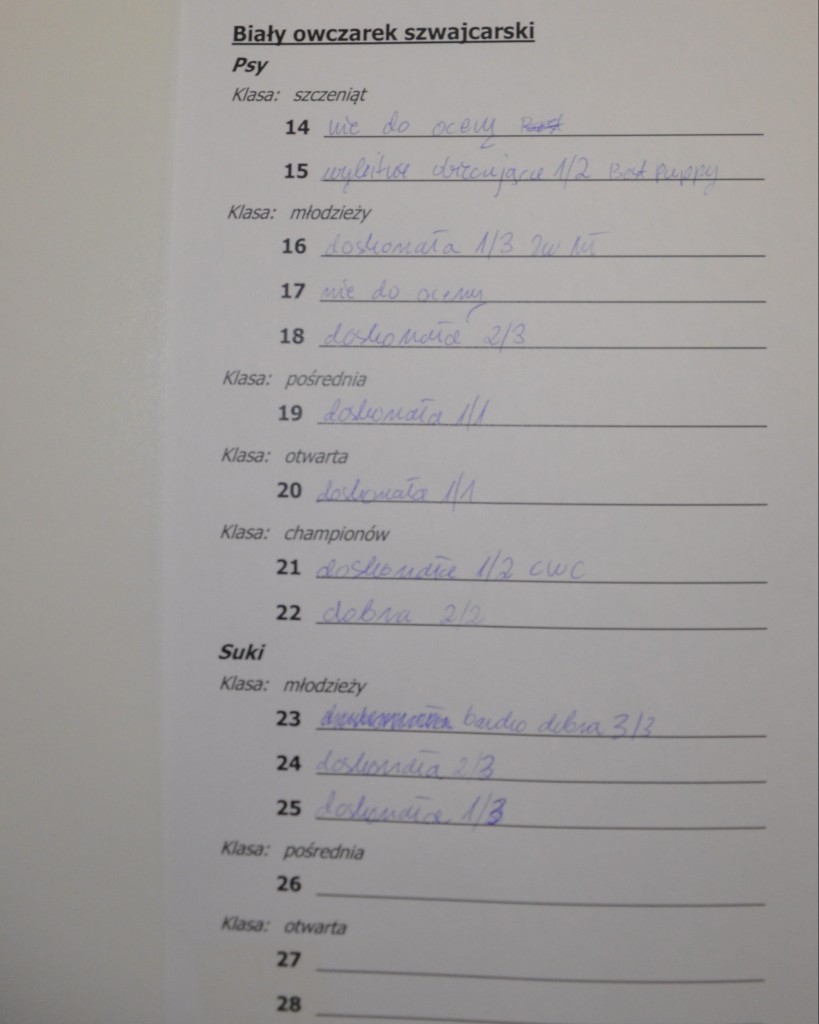 Biały owczarek szwajcarski
Psy
Klasa: szczeniąt
14 nie do oceny
15 wybitnie obiecująca 1/2 Best Puppy
Klasa: młodzieży
16 doskonała 1/3 Zw Mł
17 nie do oceny
18 doskonała 2/3
Klasa: pośrednia
19 doskonała 1/1
Klasa: otwarta
20 doskonała 1/1
Klasa: championów
21 doskonała 1/2 CWC
22 dobra 2/2
Suki
Klasa: młodzieży
23 bardzo dobra 3/3
24 doskonała 2/3
25 doskonała 1/3
Klasa: pośrednia
26
Klasa: otwarta
27
28